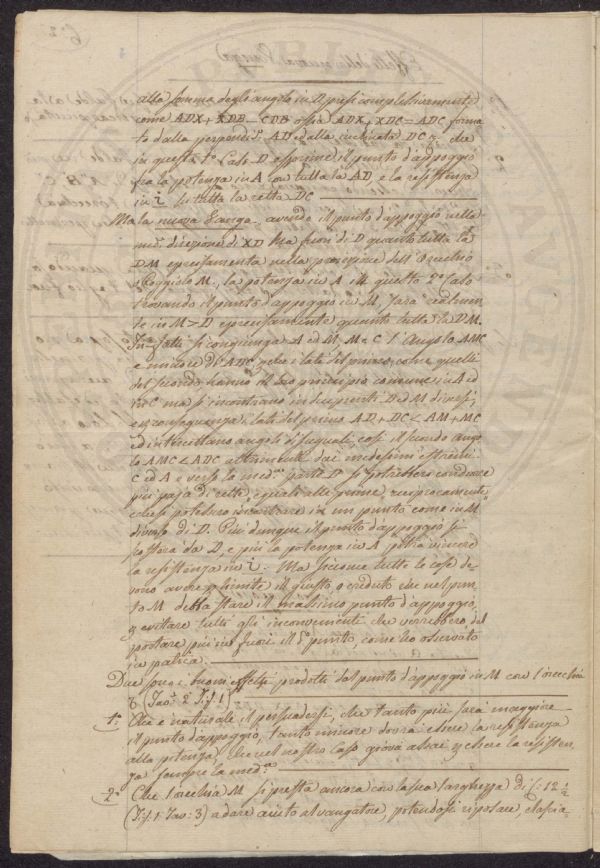 alla somma degli angoli in D presi complessivamente
come ADX + XDB = CDB ossia ADX + XDC = ADC forma
to dalla perpendic.e AD e dalla inclinata DC
in questo 1.o Caso D esprime il punto d'appoggio
fra la potenza in A con tutta la AD e la resistenza
in C tutta la retta DC
Ma la nuova Vanga avendo il punto d'appoggio nella
med.a direzione di XD ma fuori di D quanto tutta la
DM espressamente nella proiezione dell'orecchio
Poggiolo M., la potenza in A in questo 2.o Caso
trovando il punto d'appoggio in M, sarà
te in M > D espressamente quanto tutta la DM.
Infatti si congiunga A ed M, M e C l'Angolo AMC
è minore di ADC, perché i lati del primo, come quelli
del secondo hanno il loro principio comune in A ed
in C ma si incontrano in due punti D ed M diversi,
e in conseguenza i lati del primo AD + DC < AM + MC
ed intercettano angoli disuguali, così il secondo ango
lo AMC < ADC altrimenti dai medesimi estremi
C ed A e verso la med.a parte D si potrebbero condurre
più paja di rette, eguali alle prime, reciprocamente
e le si potessero incontrare in un punto come in M
diverso di D. Più dunque il punto d'appoggio si
sposterà da D, e più la potenza in A potrà vincere
la resistenza in C. Ma siccome tutte le cose de
vono avere per limite il giusto, o creduto che nel pun
to M debba stare il massimo punto d'appoggio,
p evitare tutti gli inconvenienti che verrebbero del
portare più in fuori il d.o punto, come ho osservato
in pratica.
Due sono i buoni effetti prodotti dal punto d'appoggio in M con l'orecchia
(Tav.a 2.a Fig. 1)
1.o Che è naturale il persuadersi, che tanto più sarà maggiore
il punto d'appoggio, tanto minore dovrà essere la resistenza
alla potenza, che nel nostro caso giova assai p essere la resisten
za sempre la med.a
2.o Che l'orecchia M si presta ancora con la sua larghezza di 12 1/2
(Fig. 1. Tav. 3) a dare aiuto al vangatore, potendosi riposare,